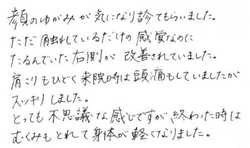 顔のゆがみが気になり診てもらいました。
ただ触れているだけの感覚なのに
たるんでいた右側が改善されていました。
肩こりもひどく来院時は頭痛もしていましたが
スッキリしました。
とっても不思議な感じですが終わった時は
むくみもとれて身体が軽くなりました。